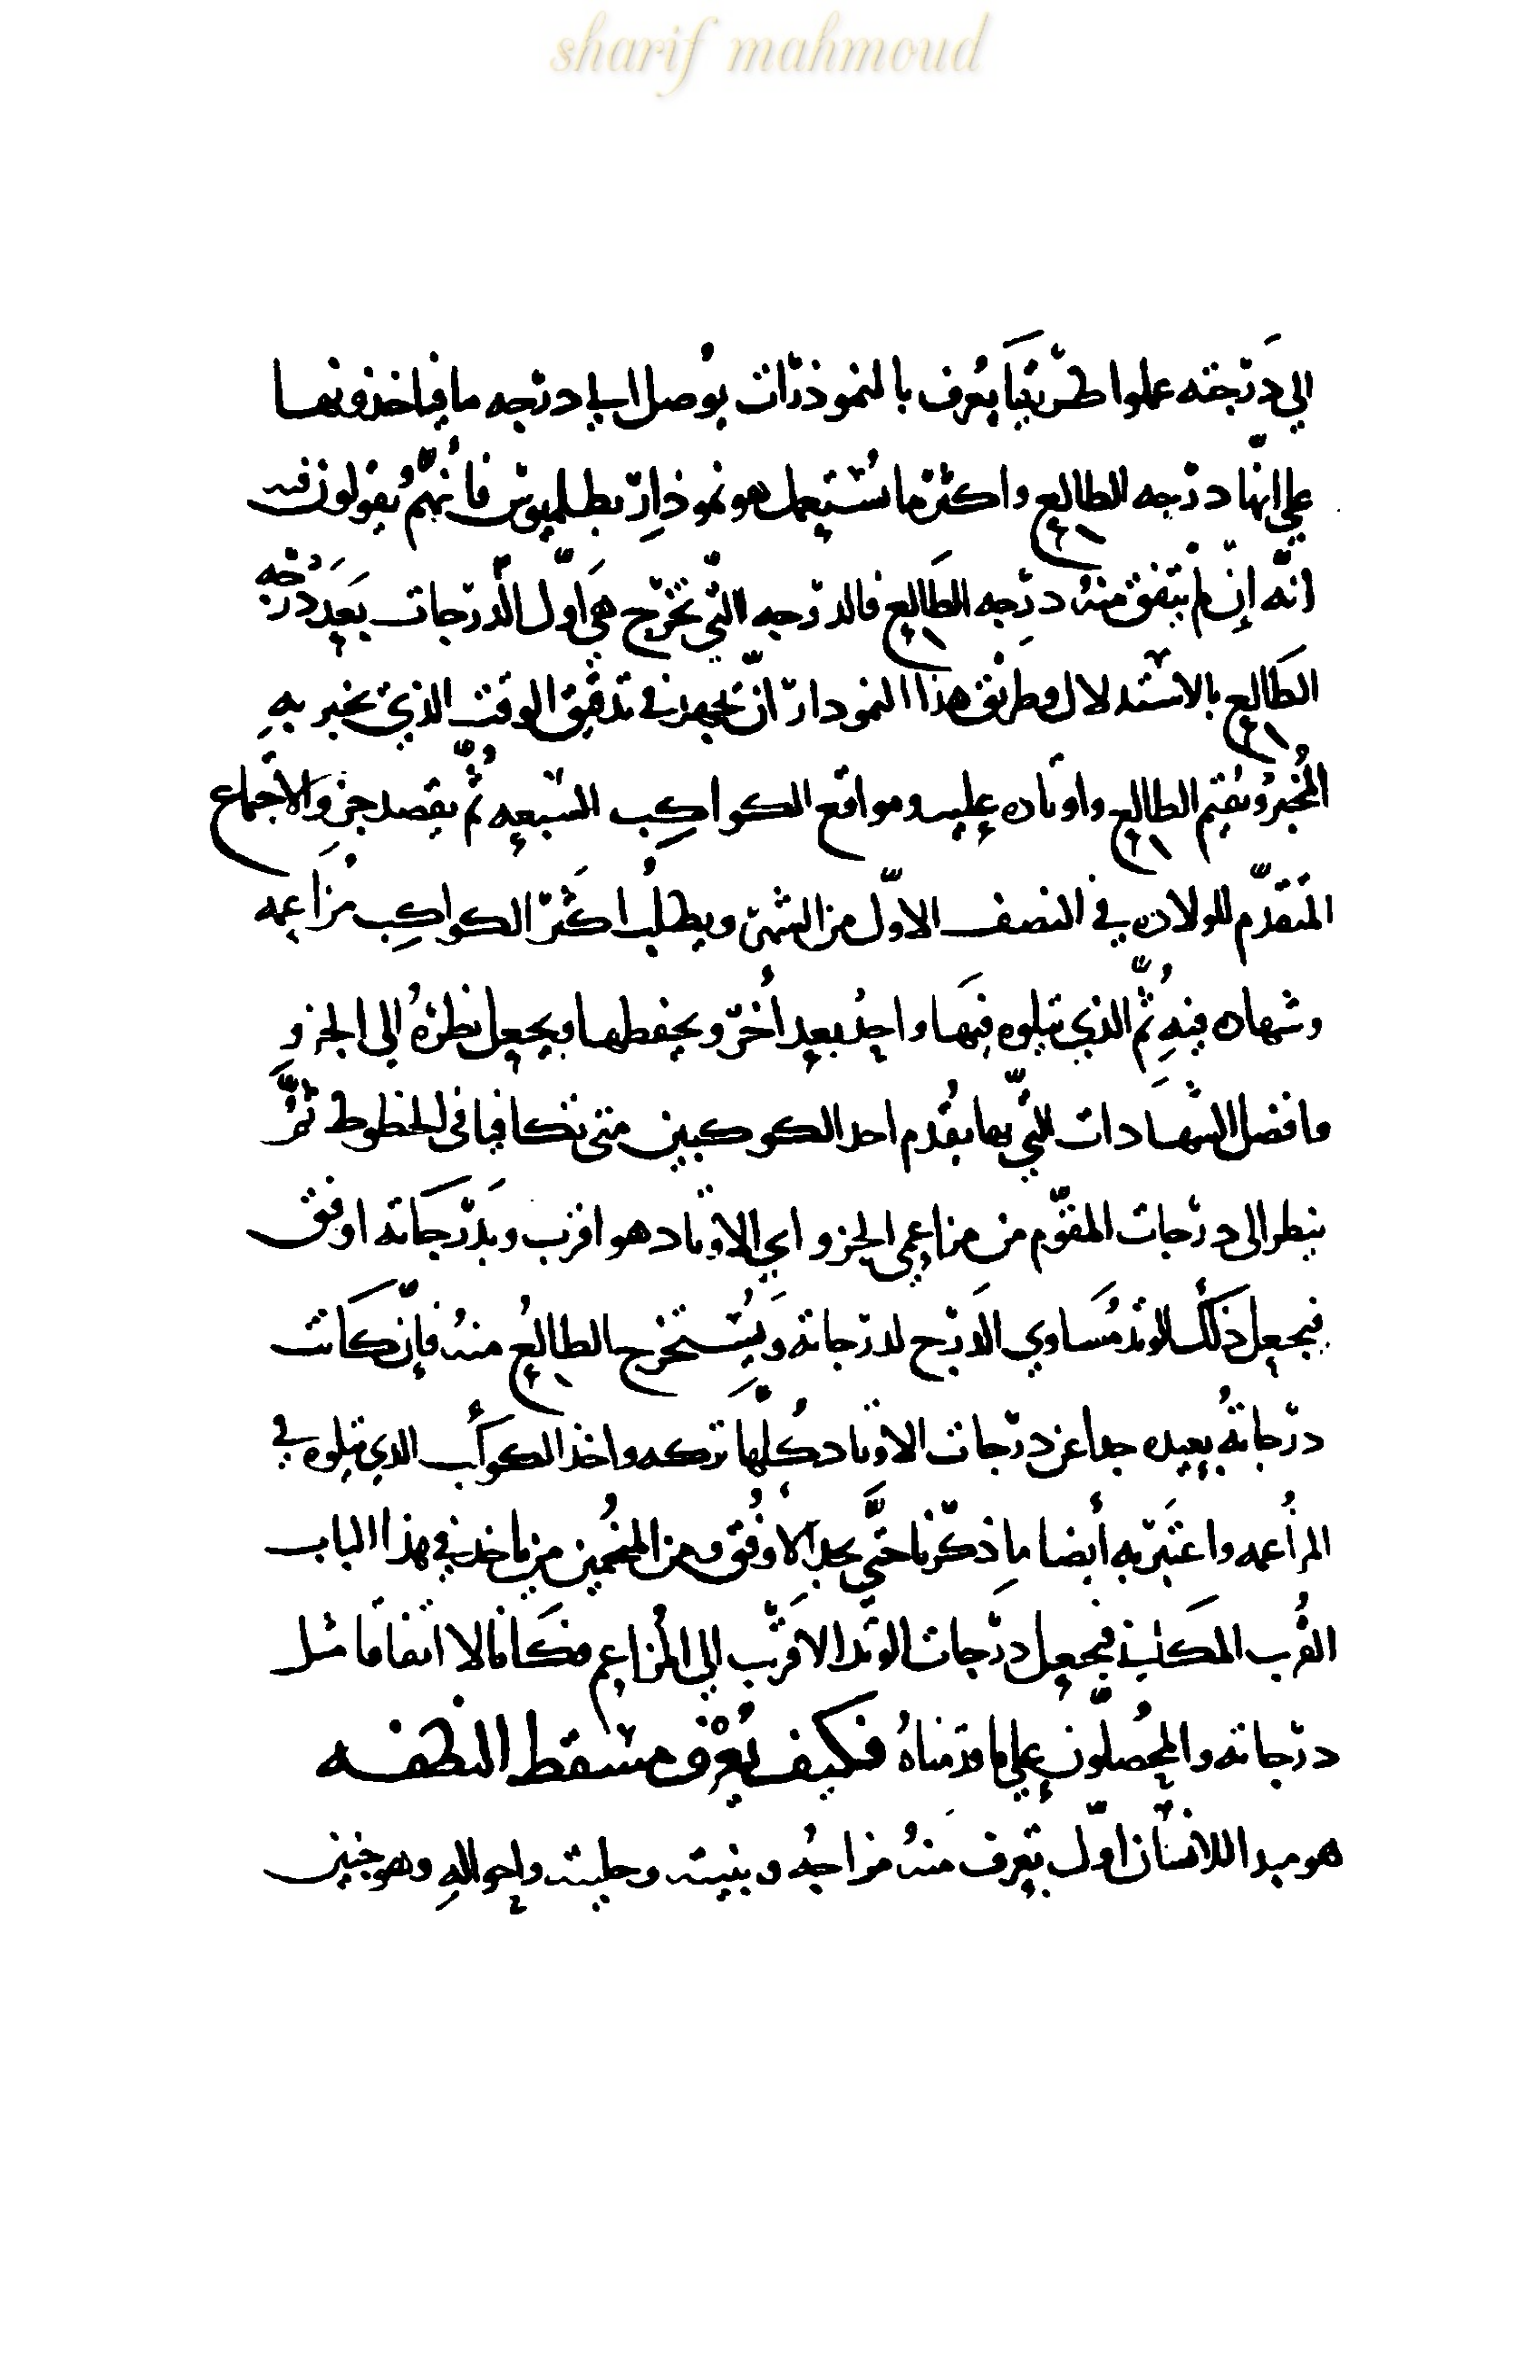 sharif mahmoud
الى دَرَجته عملوا طريقًا يُعرف بالنموذرات يُوصل الى درجه ما فياخذونها
على انّها درجه الطالع واكثر ما يُستعمل هو نموذار بطلميوس فانّهم يقولون فيه
انّه إن لم يتفق منه درجه الطَالع فالدرجه التّي تخرج هي اوّل الدرجات بعد دَرَجه
الطَالع بالاستدلال وطريق هذا النمودار انّ يجهد في تدقيق الوقت الذي يخبر بهِ
المُخبر ويُقيم الطالع واوتاده عليه ومواقع الكواكب السبعه ثُمّ يقصد جزو الاجتماع
المتَقدّم للولاده في النصف الاوّل من الشهر ويطلُب اكثَر الكواكب مزاعمه
وشهاده فيهِ ثُمّ الذي يتلوه فيها واحدُ بعد أُخرّ ويحفظها ويجعل نظرهُ الى الجزو
وافضل الشهادات التّي بها يقُدم احد الكوكبين متى تكافيا في الحظوط ثُمّ
ينطر الى درجات المقّوم من مزاعمي الجزو اي الاوتاد هو اقرب وبدَرجَاته اوفق
فيجعل ذَلك الوتد مُسَاوي الدَرج لدرجاته ويُستخرج الطالعُ منهُ فإن كَانت
درجاتهُ بعيده جدا عن درجات الاوتاد كُلّها تركه واخذ الكوكَب الدي يتلوه في
المزاُعمه واعتَبر به أيضا ما ذكّرنا حتَّي يجد الأوفُق ومن المنجُمين من ياخذ في هذا الباب
القُرب المكَاني فيجعل درجات الوتد الاقَرب الى المُزاعم مكَانا لا اتفاقا مثل
درجاته والمحُصلّون على ما قدمناهُ فكيف يُعْرف مسقط النطفه
هو مبدا للانسان اوّل يتعرف منهُ مزاجهُ وبنيته وحليته واحوالهِ وهو جنين